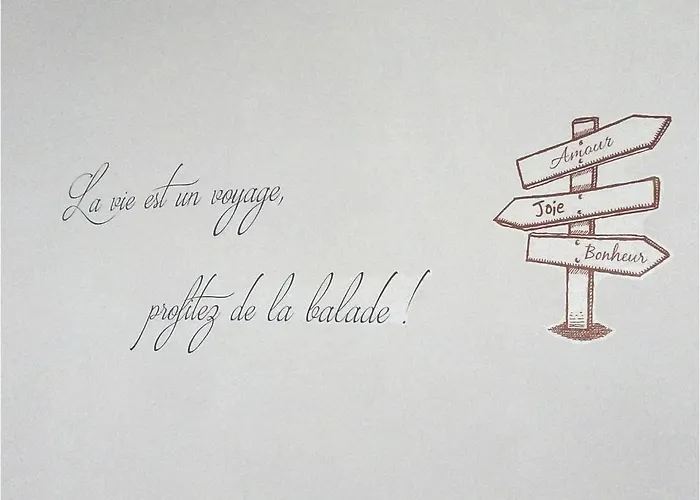 La vie est un voyage,
profitez de la balade !
Amour
Joie
Bonheur